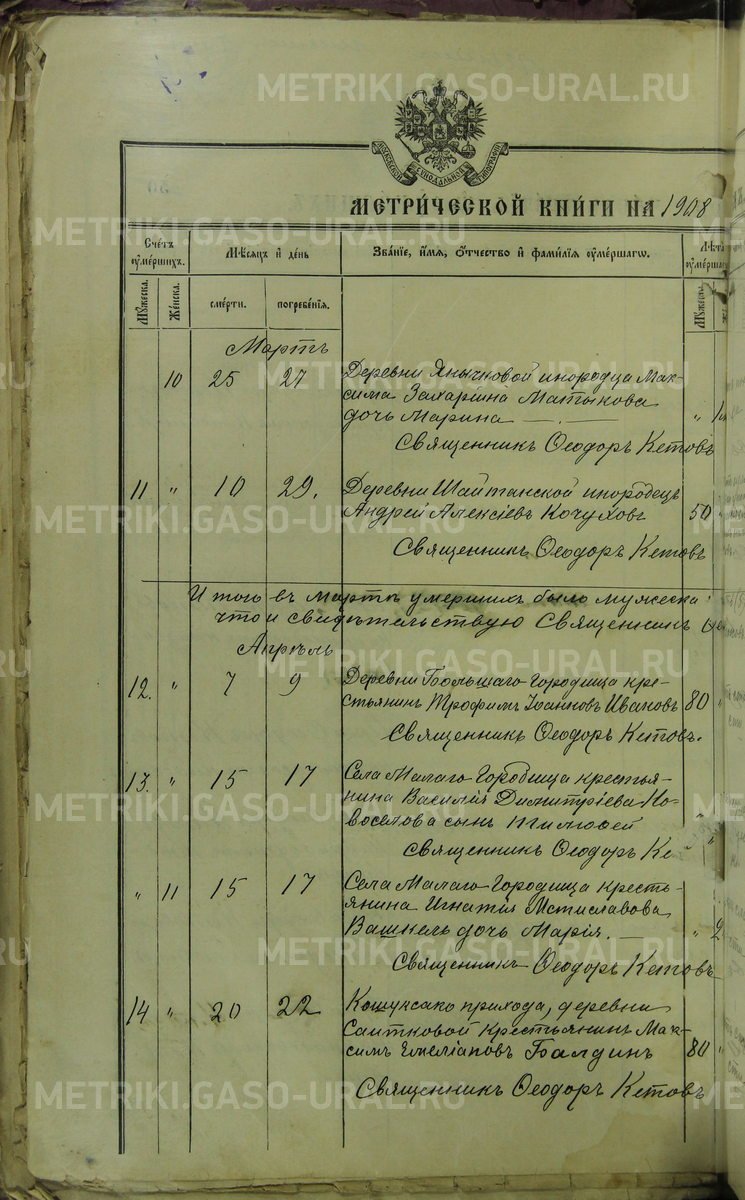 METRIKI.GASO-URAL.RU
МОСКОВСКОЙ СУНОДАЛЬНОЙ ТИПОГРАФІИ
МЕТРИ́ЧЕСКОЙ КНИ́ГИ НА 1908
Сче́тъ ᲂу҆ме́ршихъ. Мѣ́сяцъ и҆ де́нь Зва́нїе, и҆́мя, ѻ҆́тчество и҆ фами́лїя ᲂу҆ме́ршагѡ. Лѣ́та ᲂу҆ме́ршаг
Му́жеска. Же́нска. сме́рти. погребе́нїя. Му́жеска.
Мартъ
10 25 27 Деревни Янычковой инородца Мак-
сима Захаріина Матыкова
дочь Марина — . — „
Священникъ Ѳеодоръ Кетовъ
11 „ 10 29. Деревни Шайтанской инородецъ
Андрей Алексіевъ Кочуховъ 50
Священникъ Ѳеодоръ Кетовъ
Итого въ мартѣ умершихъ было мужеска
что и свидѣтельствую Священникъ
Апрѣль
12. „ 7 9 Деревни Большаго Городища кре-
стьянинъ Трофимъ Іоанновъ Ивановъ 80 „
Священникъ Ѳеодоръ Кетовъ.
13. „ 15 17 Села Малаго Городища крестья-
нина Василія Димитріева Но-
воселова сынъ Тимоѳей „
Священникъ Ѳеодоръ Ке
„ 11 15 17 Села Малаго Городища кресть-
янина Игнатія Мстиславова
Вашкель дочь Марія. — „ 2
Священникъ Ѳеодоръ Кетовъ
14 „ 20 22 Кошукскаго прихода, деревни
Саитковой крестьянинъ Мак-
симъ Емеліановъ Балдинъ 80 „
Священникъ Ѳеодоръ Кетовъ